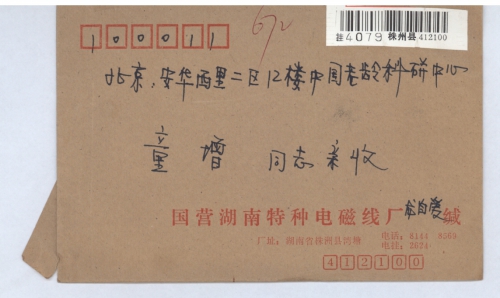 100011
672
挂4079 株州县412100
北京,安华西里二区12楼中国老龄科研中心
童增 同志亲收
国营湖南特种电磁线厂 缄
厂址:湖南省株洲县渌口
电话:
电挂:2624
412100